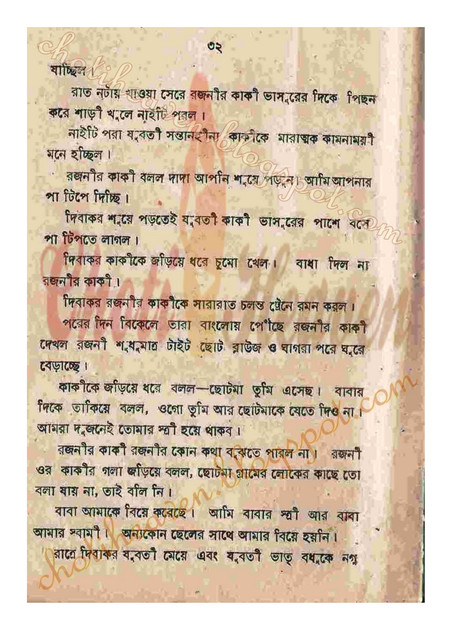 ৩২
যাচ্ছিল।
রাত নটায় খাওয়া সেরে রজনীর কাকী ভাসুরের দিকে পিছন
করে শাড়ী খুলে নাইটি পরল।
নাইটি পরা যুবতী সন্তানহীনা কাকীকে মারাত্মক কামনাময়ী
মনে হচ্ছিল।
রজনীর কাকী বলল দাদা আপনি শুয়ে পড়ুন। আমি আপনার
পা টিপে দিচ্ছি।
দিবাকর শুয়ে পড়তেই যুবতী কাকী ভাসুরের পাশে বসে
পা টিপতে লাগল।
দিবাকর কাকীকে জড়িয়ে ধরে চুমো খেল। বাধা দিল না
রজনীর কাকী।
দিবাকর রজনীর কাকীকে সারারাত চলন্ত ট্রেনে রমন করল।
পরের দিন বিকেলে তারা বাংলোয় পৌঁছে রজনীর কাকী
দেখল রজনী শুধুমাত্র টাইট ছোট ব্লাউজ ও ঘাগরা পরে ঘুরে
বেড়াচ্ছে।
কাকীকে জড়িয়ে ধরে বলল—ছোটমা তুমি এসেছ। বাবার
দিকে তাকিয়ে বলল, ওগো তুমি আর ছোটমাকে যেতে দিও না।
আমরা দুজনেই তোমার স্ত্রী হয়ে থাকব।
রজনীর কাকী রজনীর কোন কথা বুঝতে পারল না। রজনী
ওর কাকীর গলা জড়িয়ে বলল, ছোটমা গ্রামের লোকের কাছে তো
বলা যায় না, তাই বলি নি।
বাবা আমাকে বিয়ে করেছে। আমি বাবার স্ত্রী আর বাবা
আমার স্বামী। অন্যকোন ছেলের সাথে আমার বিয়ে হয়নি।
রাতে দিবাকর যুবতী মেয়ে এবং যুবতী ভাতৃ বধুকে নগ্ন